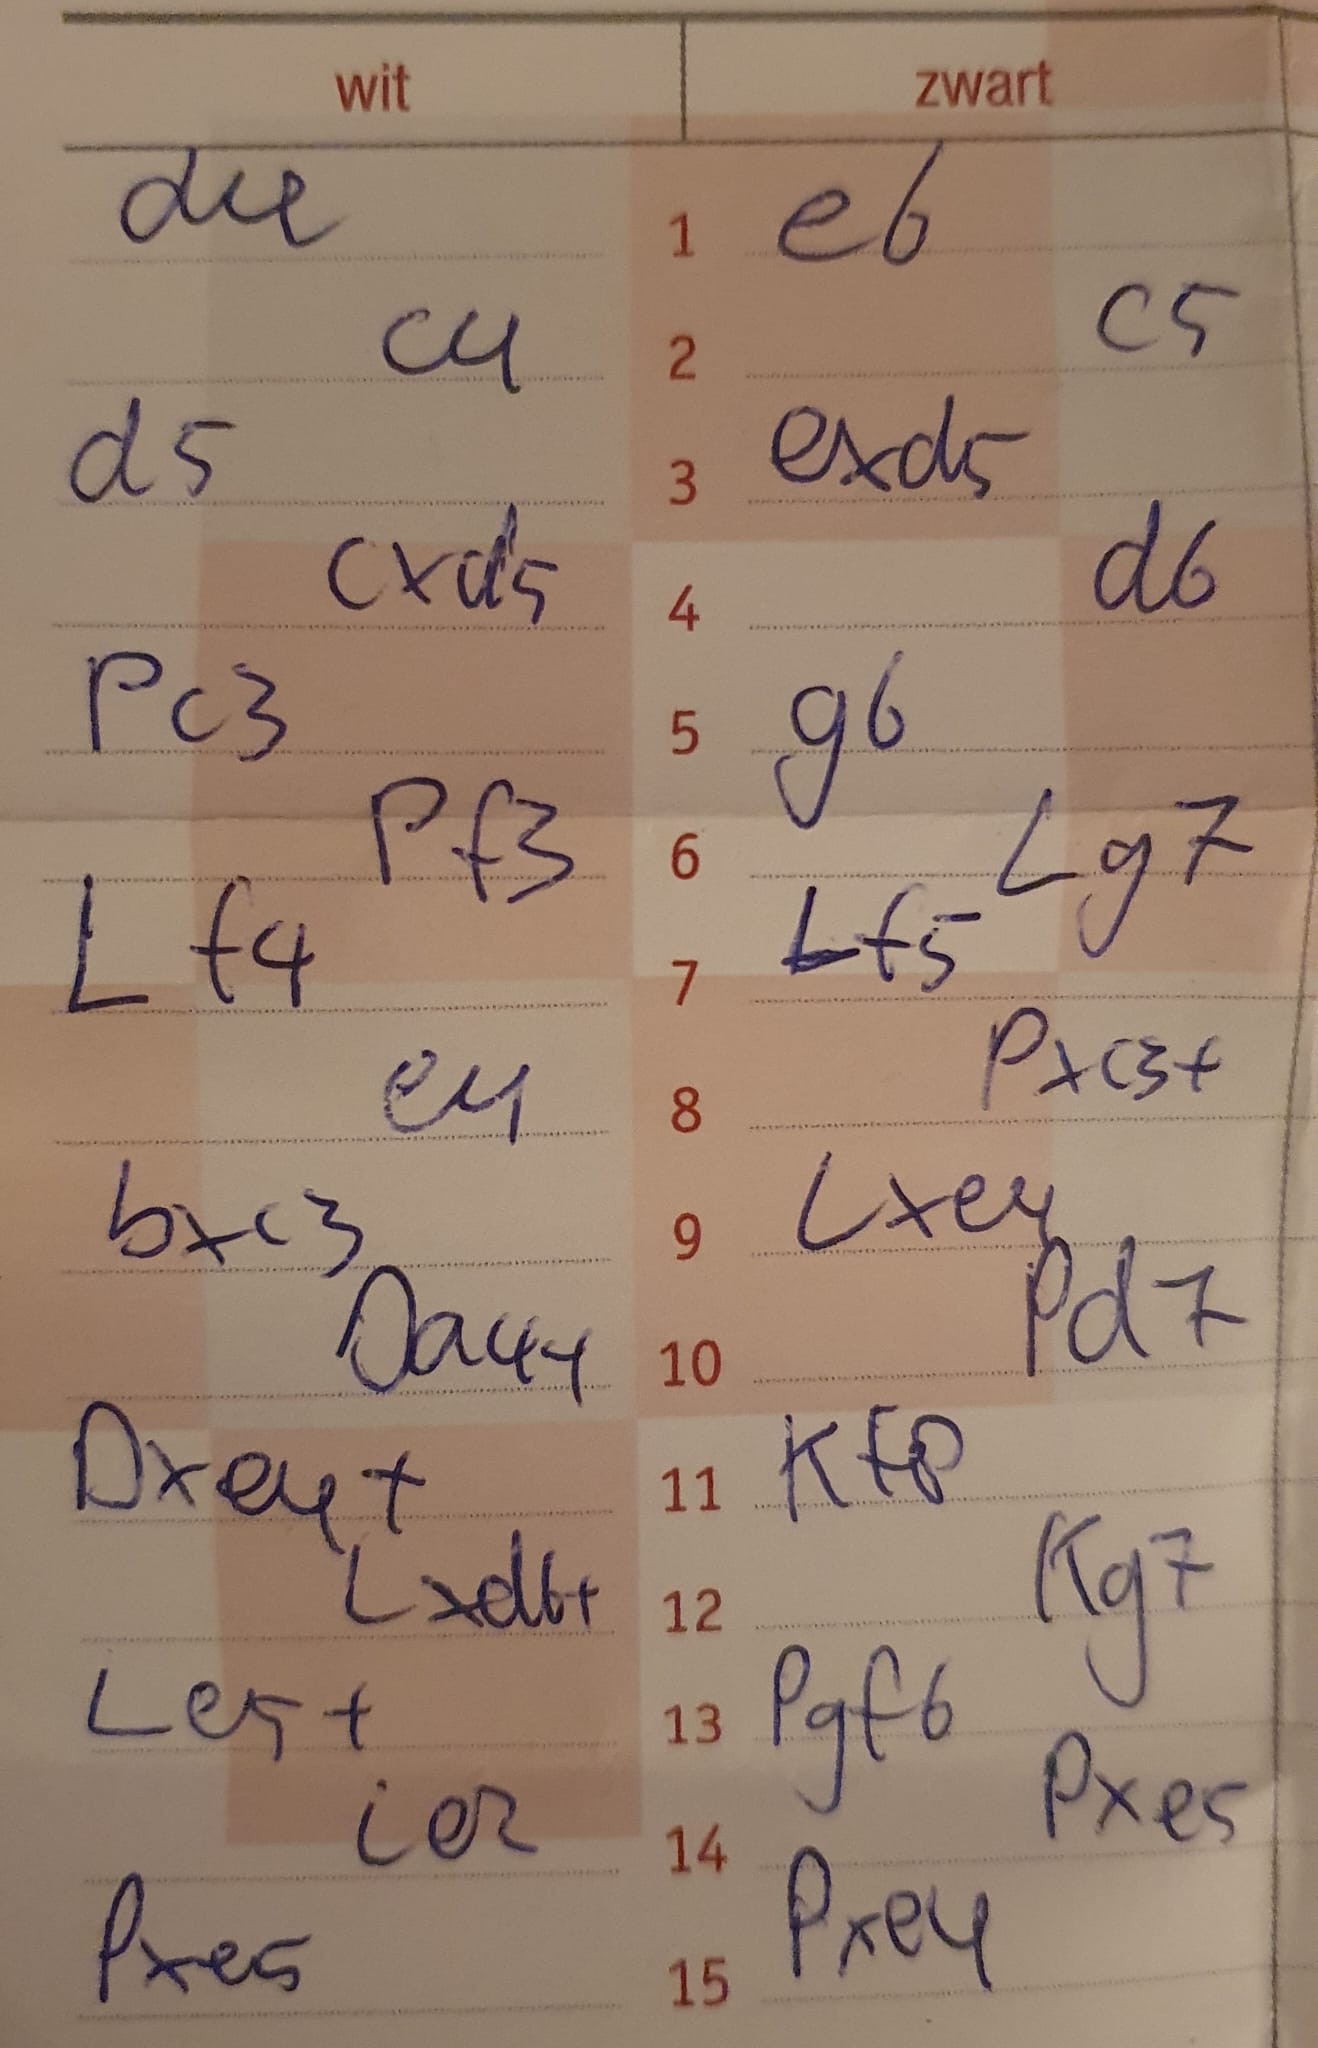 wit zwart
d4 1 e6
c4 2 c5
d5 3 exd5
cxd5 4 d6
Pc3 5 g6
Pf3 6 Lg7
Lf4 7 Lf5
e4 8 Pxc3+
bxc3 9 Lxe4
Da4+ 10 Pd7
Dxe4+ 11 Kf8
Lxd6+ 12 Kg7
Le5+ 13 Pgf6
14 Pxe5
Pxe5 15 Pxe4